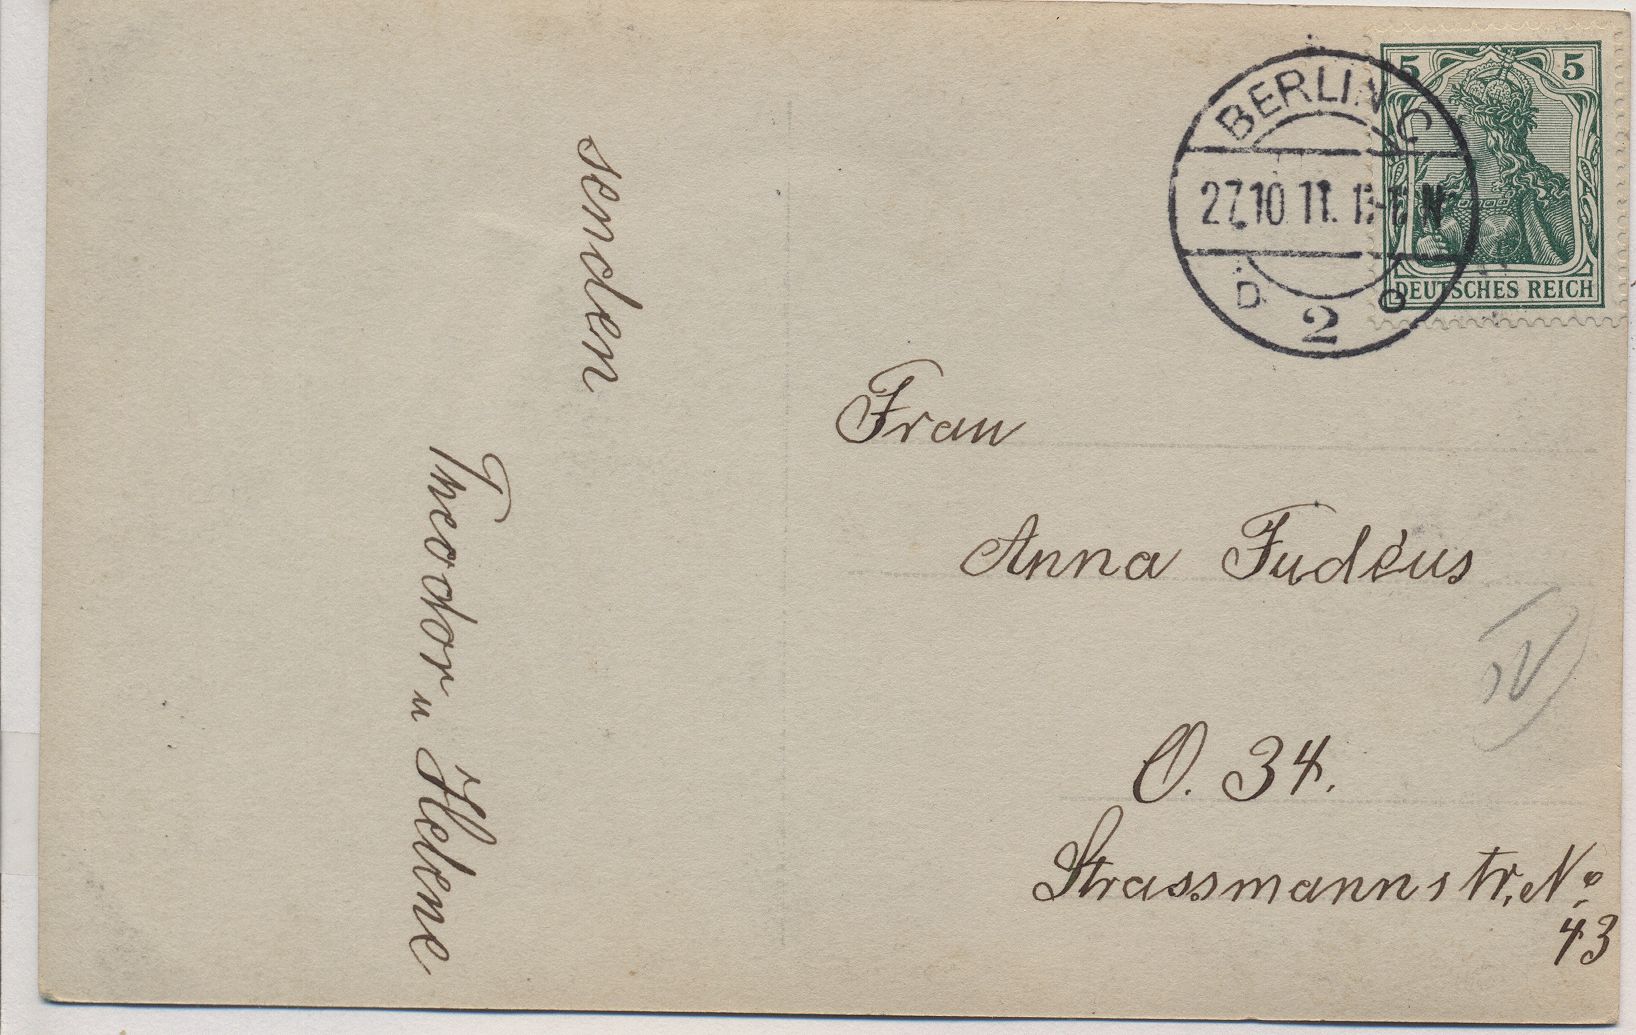 senden
Theodor u Helene
BERLIN C
27.10.11.
N
2
5 5
DEUTSCHES REICH
Frau
Anna Fudéus
O. 34.
Strassmannstr. No
43
IV